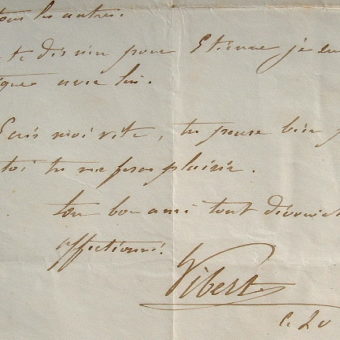 tous les autres.
te dis rien pour Etienne je
avec lui.
Ecris moi vite, tu penses bien
toi tu me feras plaisir.
ton bon ami tout dévoué
affectionné.
Vibert